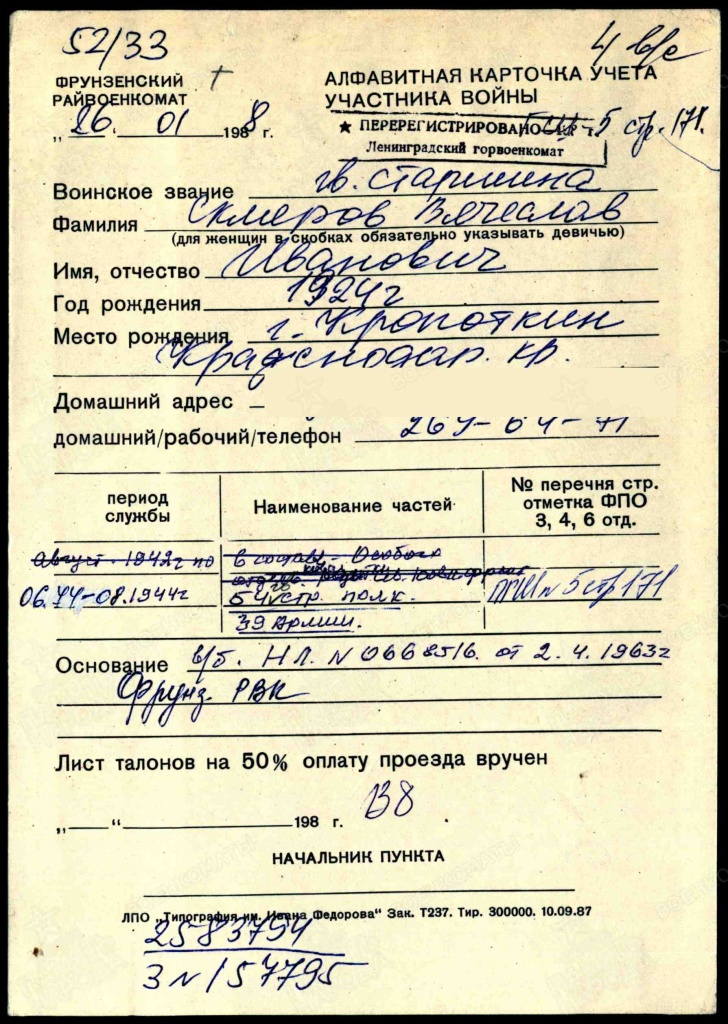 52/33
4 в/с
ФРУНЗЕНСКИЙ
РАЙВОЕНКОМАТ
„26. 01 1988 г.
АЛФАВИТНАЯ КАРТОЧКА УЧЕТА
УЧАСТНИКА ВОЙНЫ
★ ПЕРЕРЕГИСТРИРОВАНО 5 стр. 171.
Ленинградский горвоенкомат
Воинское звание гв. старшина
Фамилия Скляров Вячеслав
(для женщин в скобках обязательно указывать девичью)
Имя, отчество Иванович
Год рождения 1924г
Место рождения г. Кропоткин
Краснодар. кр.
Домашний адрес
домашний/рабочий/телефон 269-04-71
период службы
Наименование частей
№ перечня стр. отметка ФПО 3, 4, 6 отд.
Август-1942г по в составе Особого
06.44-08.1944г 54 стр. полк. N 5 стр 171
39 Армии.
Основание в/б. НЛ. N 0668516. от 2.4.1963г
Фрунз. РВК
Лист талонов на 50% оплату проезда вручен
„ “ 198 г.
НАЧАЛЬНИК ПУНКТА
ЛПО „Типография им. Ивана Федорова“ Зак. Т237. Тир. 300000. 10.09.87
2583794
3 N 157795